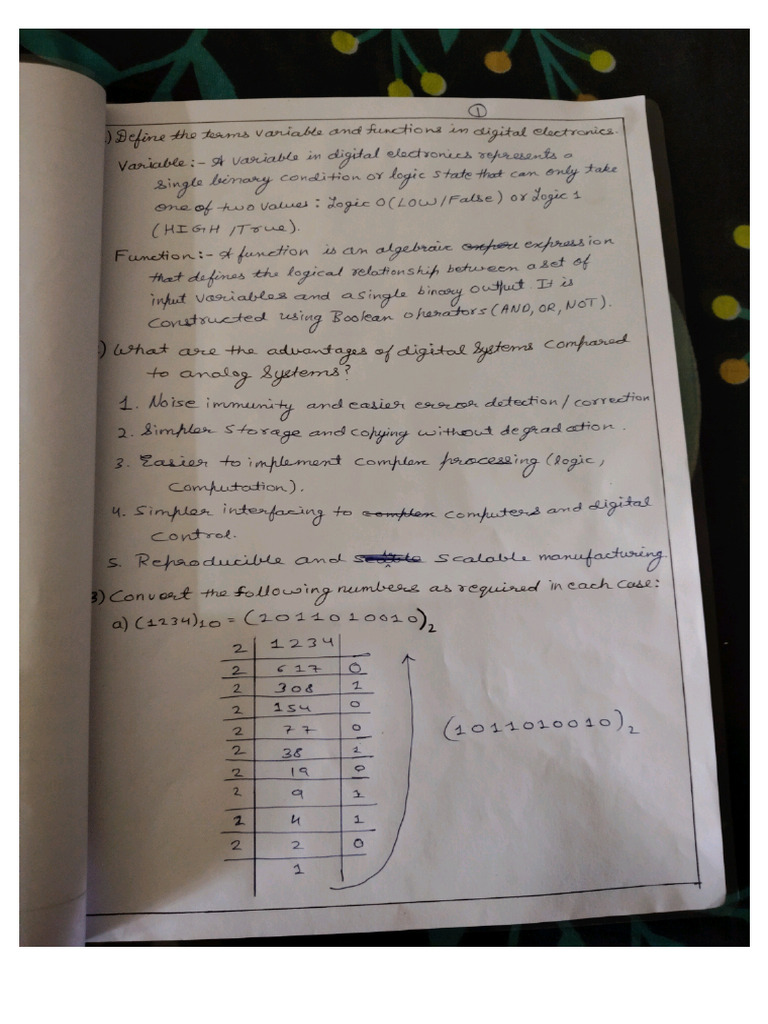 ①
) Define the terms variable and functions in digital electronics.
Variable :- A variable in digital electronics represents a
single binary condition or logic state that can only take
one of two values : Logic 0 (LOW/False) or Logic 1
(HIGH /True).
Function :- A function is an algebraic expression
that defines the logical relationship between a set of
input variables and a single binary output. It is
constructed using Boolean operators (AND, OR, NOT).
) What are the advantages of digital systems compared
to analog systems?
1. Noise immunity and easier error detection / correction
2. Simpler storage and copying without degradation.
3. Easier to implement complex processing (logic,
computation).
4. Simpler interfacing to complex computers and digital
control.
5. Reproducible and scalable manufacturing.
3) Convert the following numbers as required in each case:
a) (1234)10 = (1011010010)2
2 1234
2 617 0
2 308 1
2 154 0
2 77 0
(1011010010)2
2 38 1
2 19 0
2 9 1
2 4 1
2 2 0
1